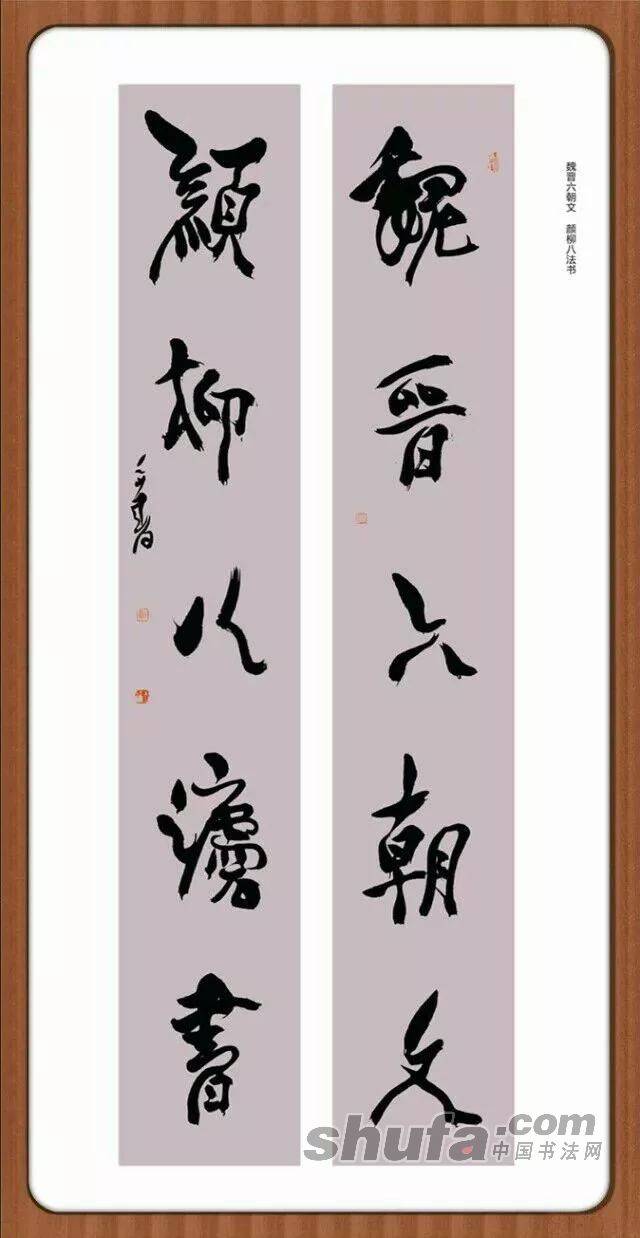 魏晋六朝文 颜柳八法书
魏晉六朝文
顔柳八灋書
shufa.com
中国书法网